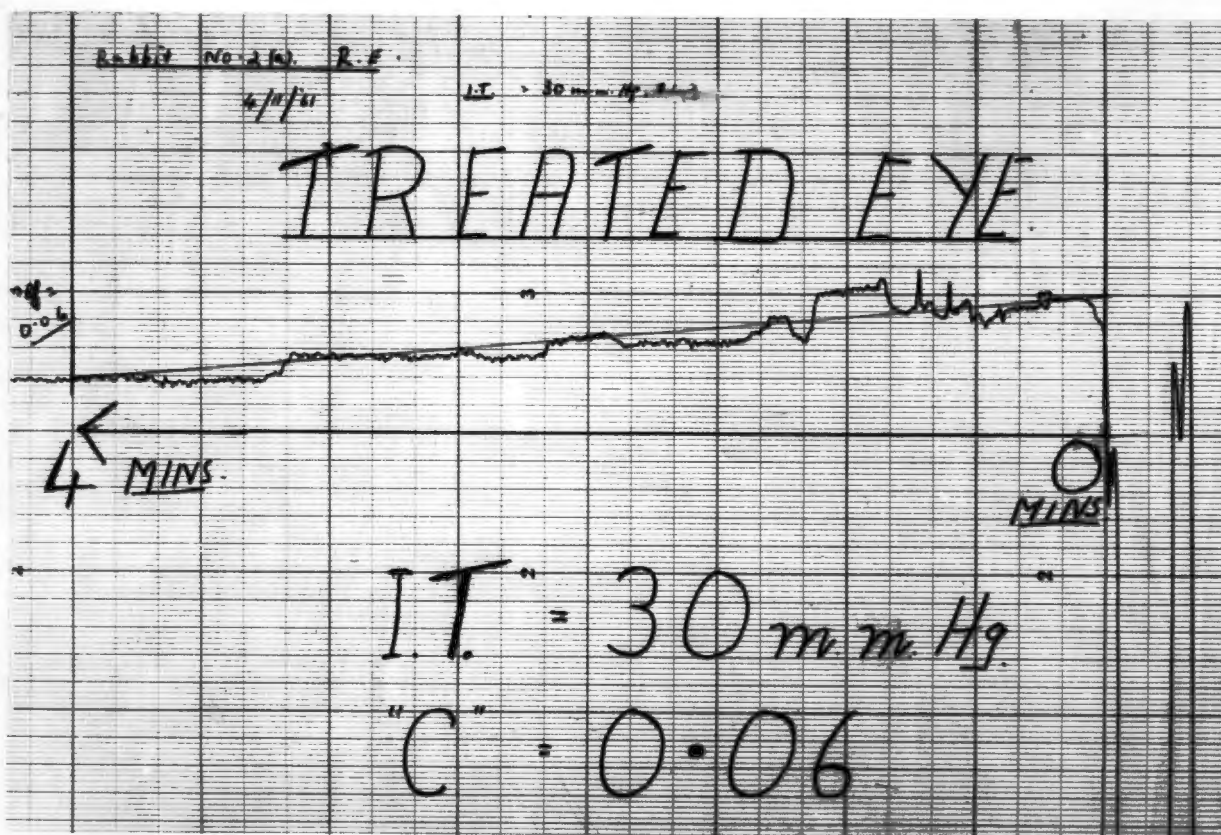 Rabbit No. 2(a). R.E.
4/11/61
I.T. = 30 m.m. Hg.
TREATED EYE
3
0.06
4 MINS.
0
MINS
2 2
I.T. = 30 m.m. Hg.
"C" = 0.06